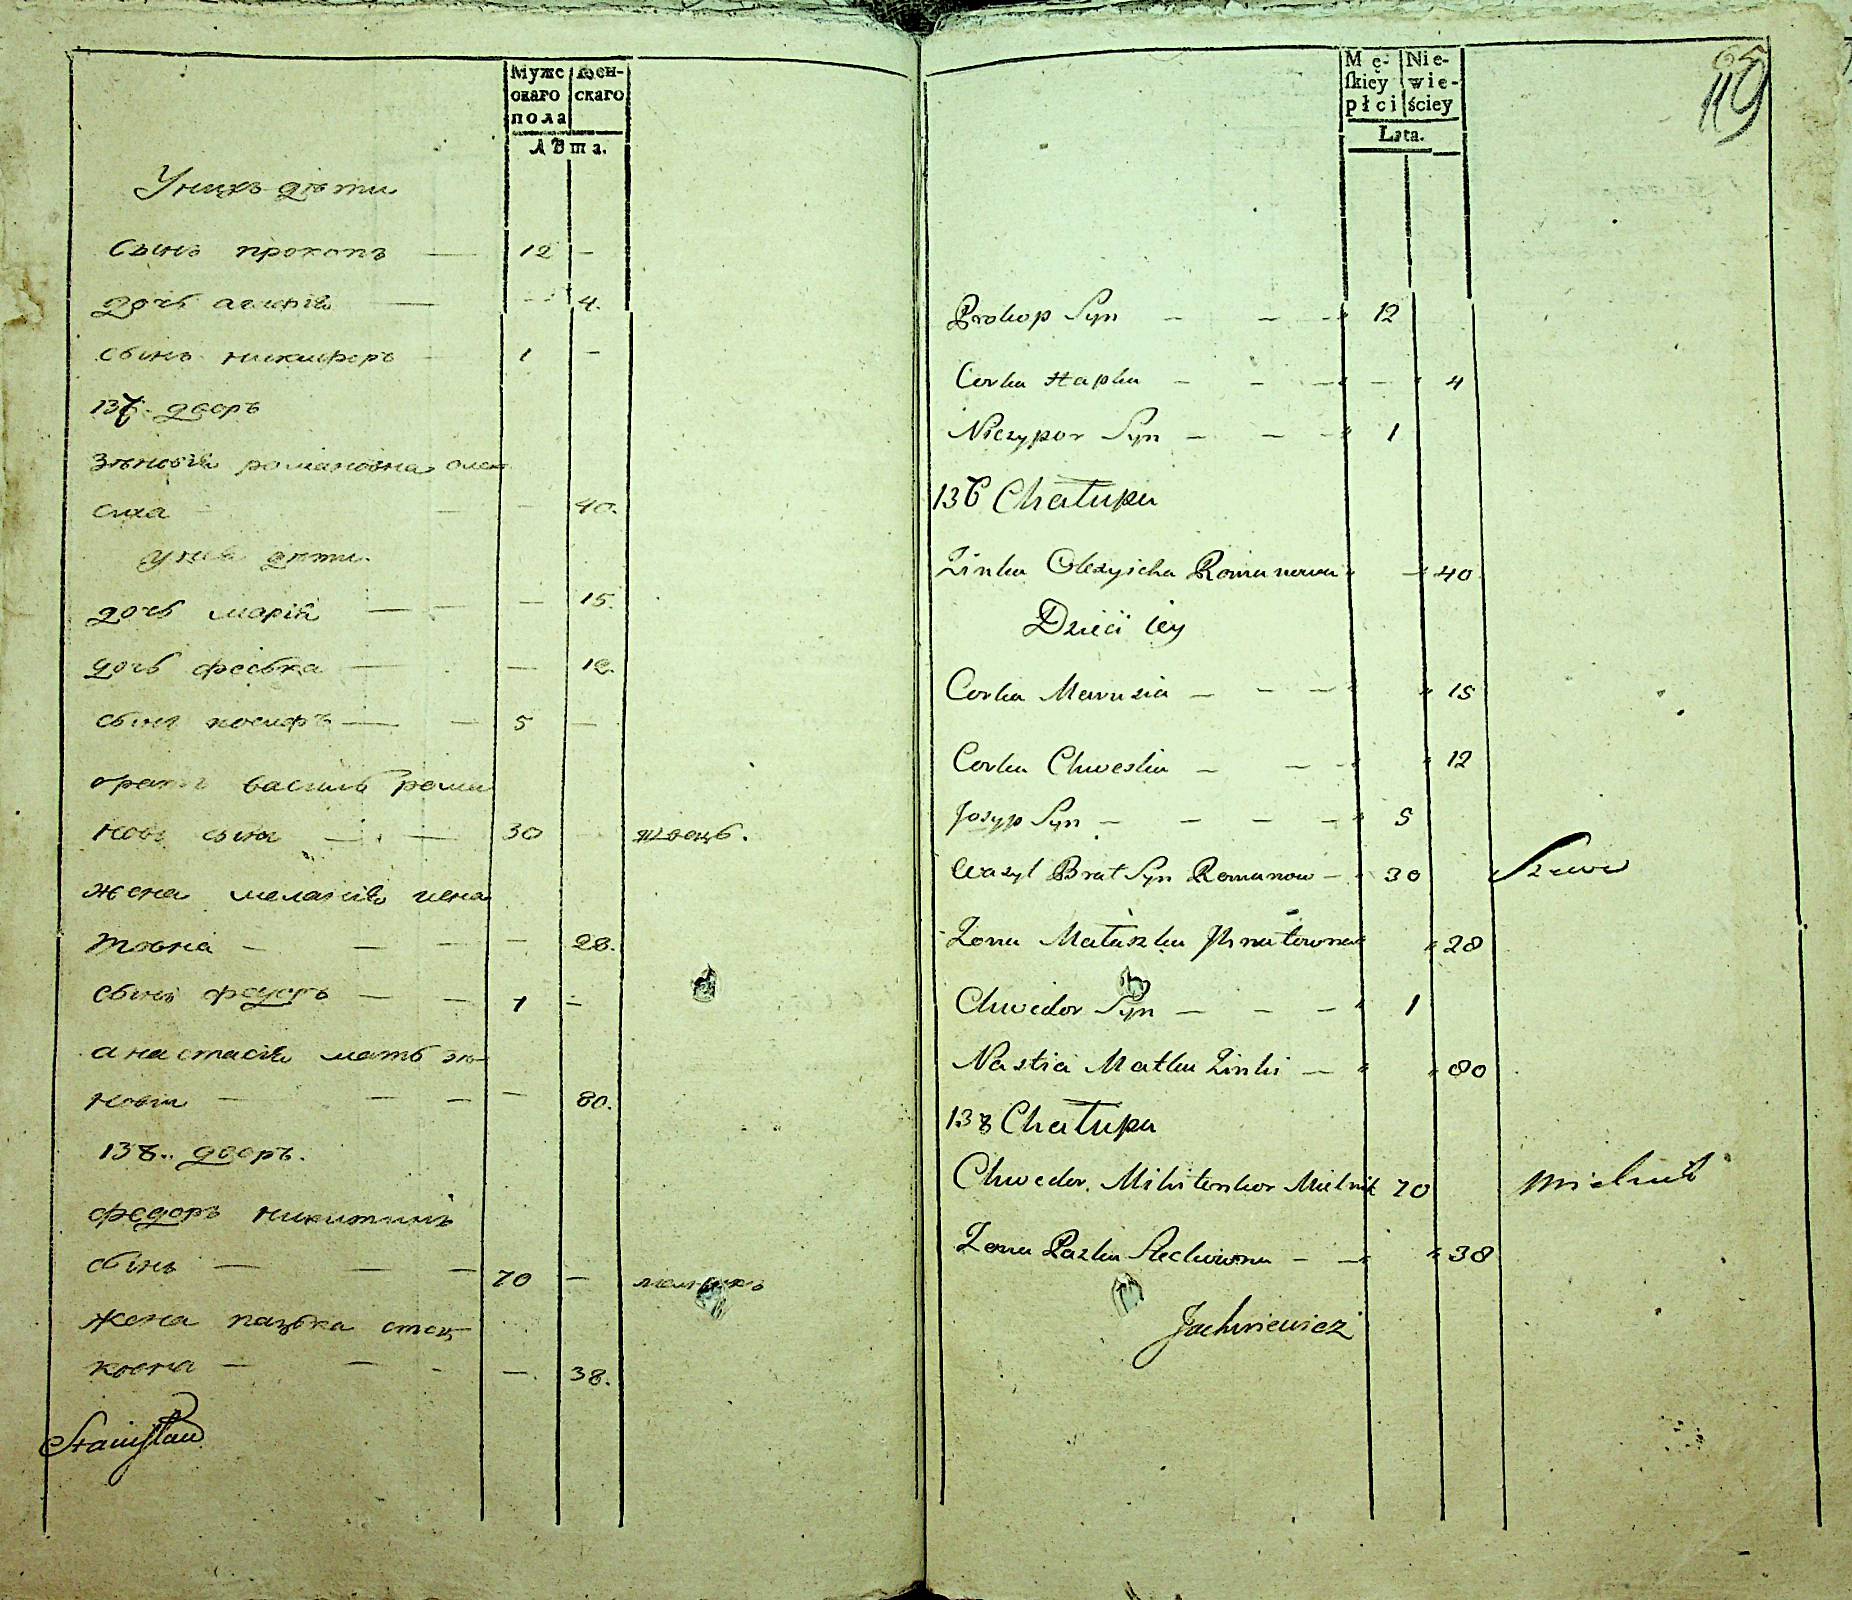 Муже женскаго
скаго
пола
Лѣта.
Унихъ дѣти
сынъ прокопъ — 12 —
дочь агафія — — 4.
сынъ никифоръ — 1 —
137. дворъ
зѣновія романовна олек
сиха — — 40.
унея дѣти.
дочь марія — — — 15.
дочь феська — — 12.
сынъ иосифъ — — 5 —
братъ василь рома
новъ сынъ — — 30 швецъ.
жена меланія игна
товна — — — — 28.
сынъ федоръ — — 1 —
анастасія мать зѣ
новіи — — — — 80.
138. дворъ.
федоръ никитинъ
сынъ — — — 70 — мельникъ
жена пазька стец
ковна — — — — 38.
Stanisław
65
119
Mę- Nie-
skiey wie-
płci ściey
Lata.
Prokop Syn — — — 12
Corka Hapka — — — — 4
Niczypor Syn — — — 1
137 Chałupa
Zinka Olexyicha Romanowa — 40
Dzieci iey
Corka Marusia — — — 15
Corka Chweska — — — 12
Josyp Syn — — — — 5
Wasyl Brat Syn Romanow — 30 Szewc
Zona Małaszka Jhnatowna 28
Chwedor Syn — — — 1
Nastia Matka Zinki — 80
138 Chałupa
Chwedor Mikitenkow Mielnik 70 Mielnik
Zona Pazka Steckowna — — 38
Jachniewicz